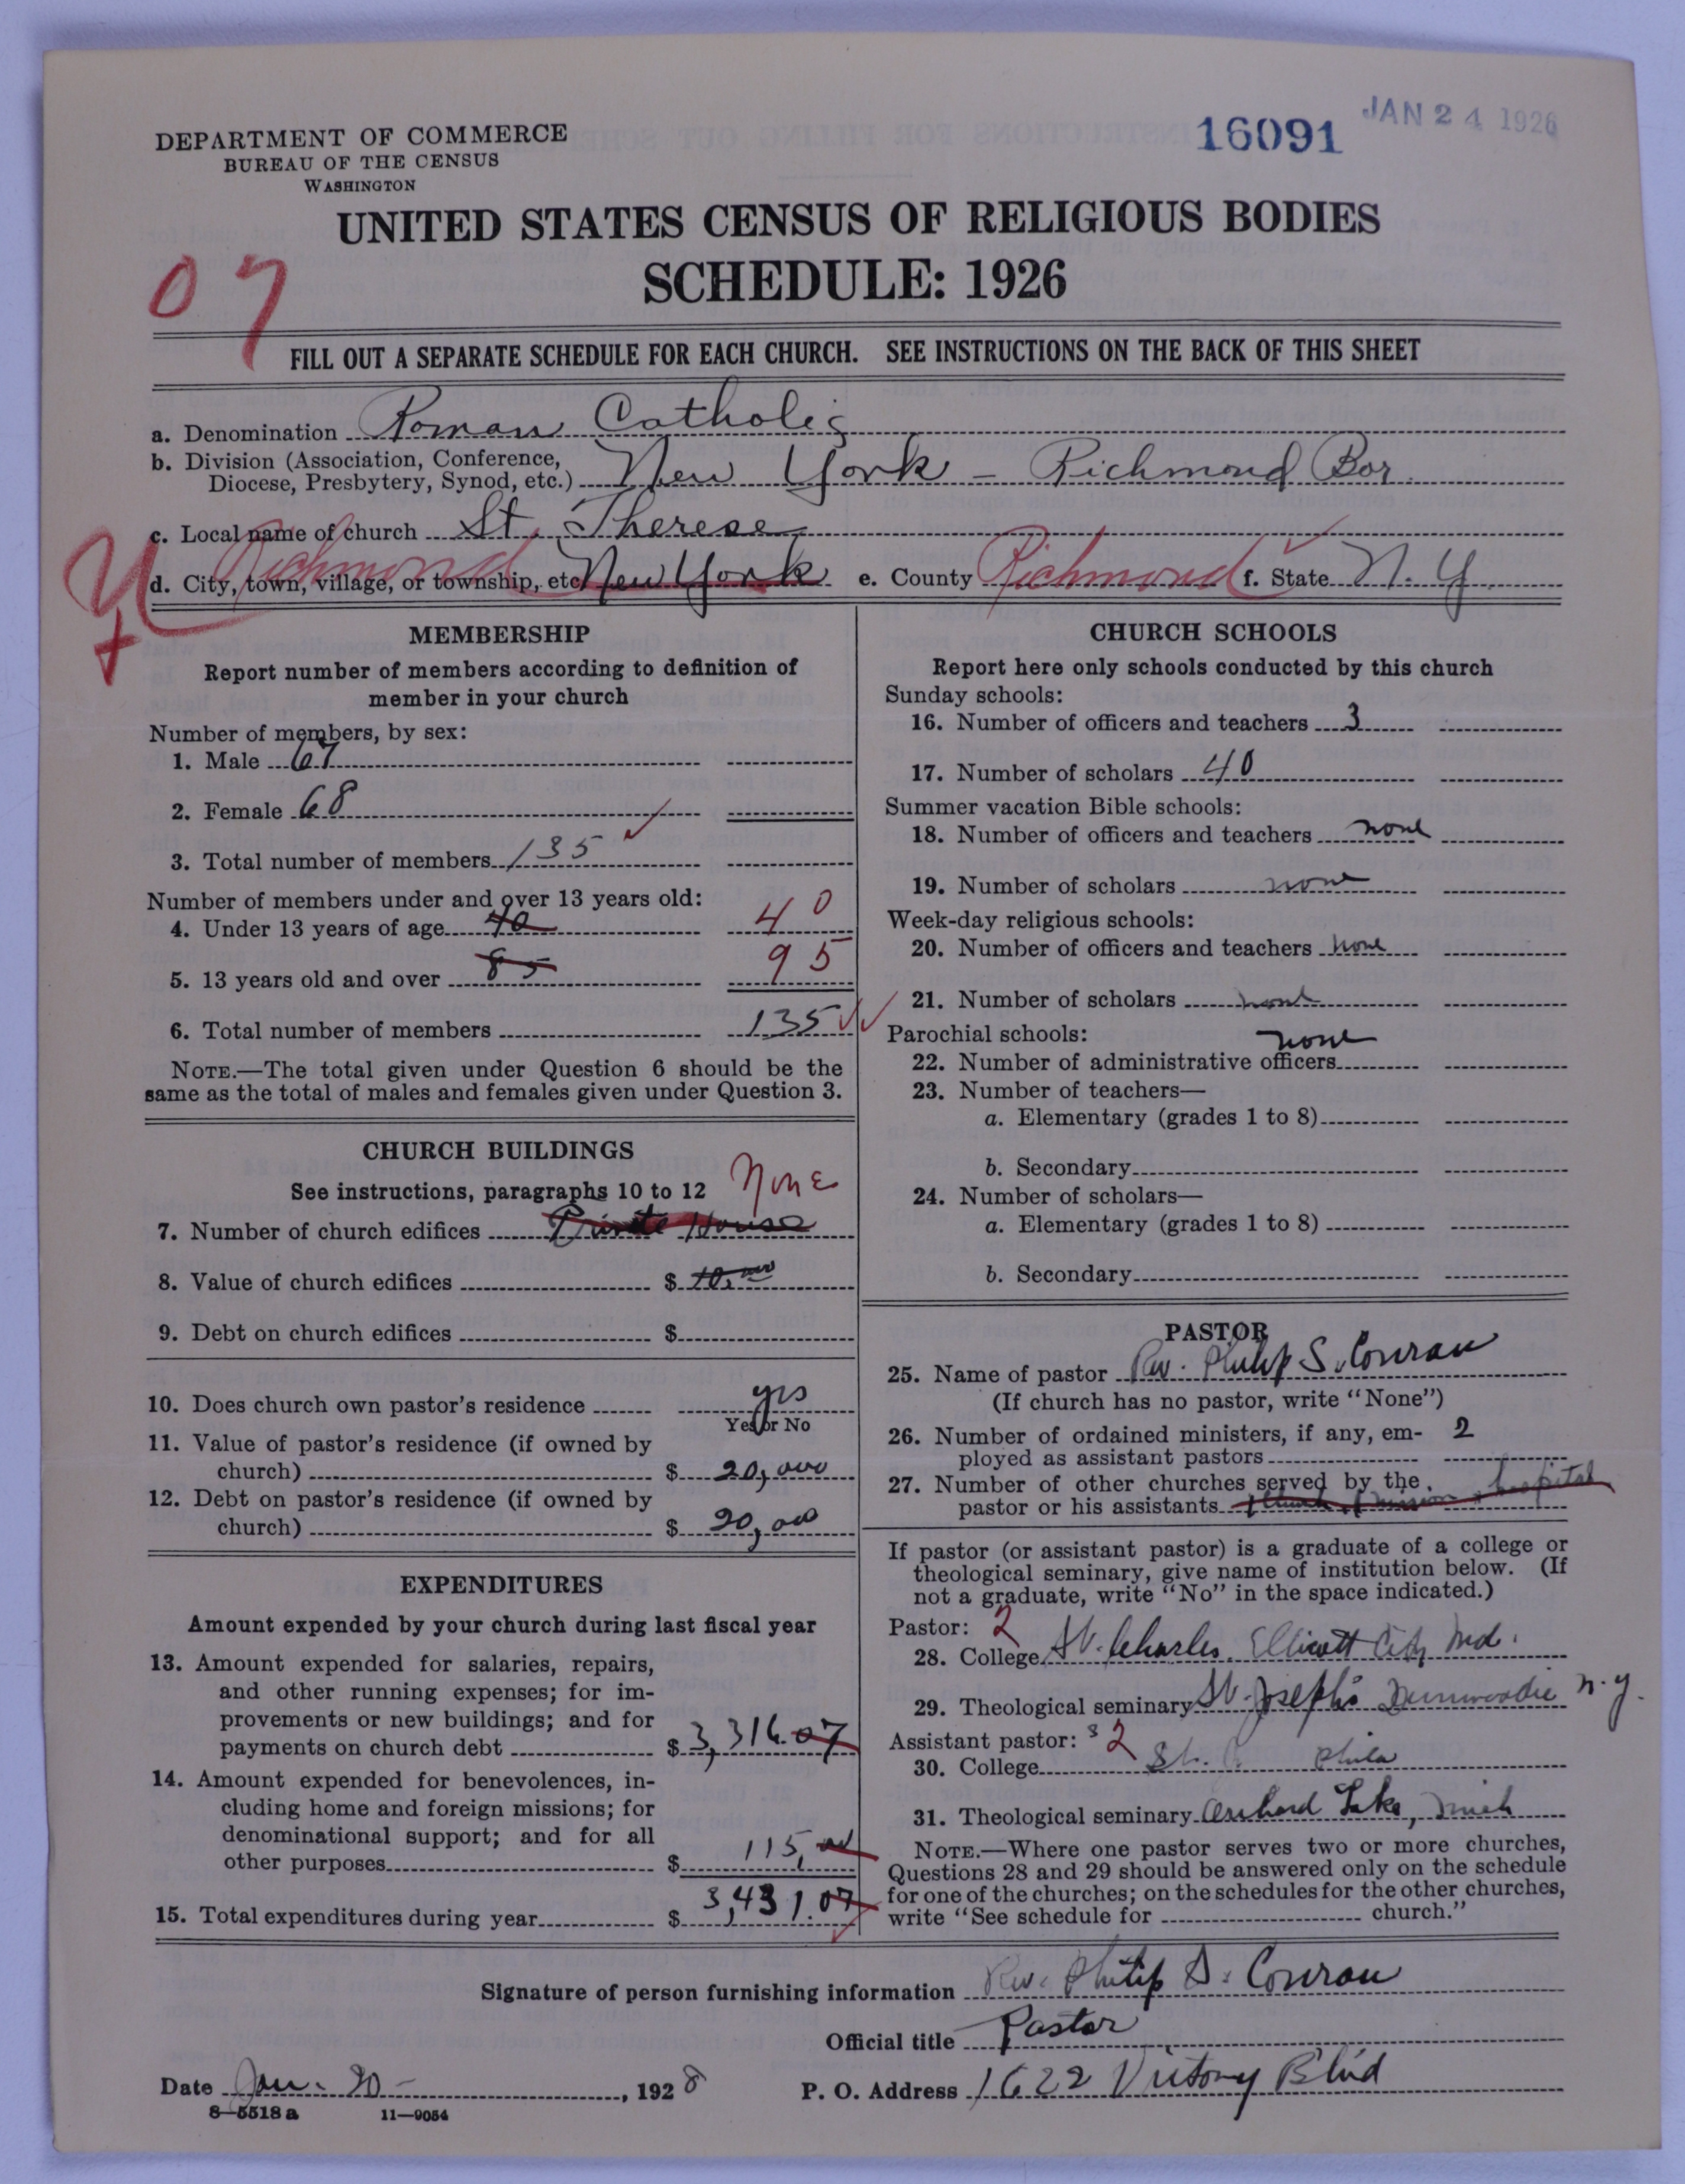 16091 JAN 24 1926
DEPARTMENT OF COMMERCE
BUREAU OF THE CENSUS
WASHINGTON
UNITED STATES CENSUS OF RELIGIOUS BODIES
SCHEDULE: 1926
07
FILL OUT A SEPARATE SCHEDULE FOR EACH CHURCH. SEE INSTRUCTIONS ON THE BACK OF THIS SHEET
a. Denomination Roman Catholic
b. Division (Association, Conference,
Diocese, Presbytery, Synod, etc.) New York - Richmond Bor.
c. Local name of church St. Therese
d. City, town, village, or township, etc. New York Richmond e. County Richmond f. State N.Y.
MEMBERSHIP
Report number of members according to definition of
member in your church
Number of members, by sex:
1. Male 67
2. Female 68
3. Total number of members 135
Number of members under and over 13 years old:
4. Under 13 years of age 40 40
5. 13 years old and over 85 95
6. Total number of members 135
NOTE.—The total given under Question 6 should be the
same as the total of males and females given under Question 3.
CHURCH BUILDINGS
See instructions, paragraphs 10 to 12 None
7. Number of church edifices Private House
8. Value of church edifices $
9. Debt on church edifices $
10. Does church own pastor's residence yes
Yes or No
11. Value of pastor's residence (if owned by
church) $ 20,000
12. Debt on pastor's residence (if owned by
church) $ 20,000
EXPENDITURES
Amount expended by your church during last fiscal year
13. Amount expended for salaries, repairs,
and other running expenses; for im-
provements or new buildings; and for
payments on church debt $ 3,316.07
14. Amount expended for benevolences, in-
cluding home and foreign missions; for
denominational support; and for all
other purposes $ 115.00
15. Total expenditures during year $ 3,431.07
CHURCH SCHOOLS
Report here only schools conducted by this church
Sunday schools:
16. Number of officers and teachers 3
17. Number of scholars 40
Summer vacation Bible schools:
18. Number of officers and teachers none
19. Number of scholars none
Week-day religious schools:
20. Number of officers and teachers none
21. Number of scholars none
Parochial schools:
22. Number of administrative officers none
23. Number of teachers—
a. Elementary (grades 1 to 8)
b. Secondary
24. Number of scholars—
a. Elementary (grades 1 to 8)
b. Secondary
PASTOR
25. Name of pastor Rev. Philip S. Conran
(If church has no pastor, write "None")
26. Number of ordained ministers, if any, em- 2
ployed as assistant pastors
27. Number of other churches served by the
pastor or his assistants 1 Church, 1 mission & hospital
If pastor (or assistant pastor) is a graduate of a college or
theological seminary, give name of institution below. (If
not a graduate, write "No" in the space indicated.)
Pastor: 2
28. College St. Charles, Ellicott City Md.
29. Theological seminary St. Joseph's Dunwoodie N.Y.
Assistant pastor: s 2
30. College Phila
31. Theological seminary Orchard Lake, Mich
NOTE.—Where one pastor serves two or more churches,
Questions 28 and 29 should be answered only on the schedule
for one of the churches; on the schedules for the other churches,
write "See schedule for church."
Signature of person furnishing information Rev. Philip S. Conran
Official title Pastor
Date Jan. 20 - , 1928 P. O. Address 1622 Victory Blvd
8—5518 a 11—9054